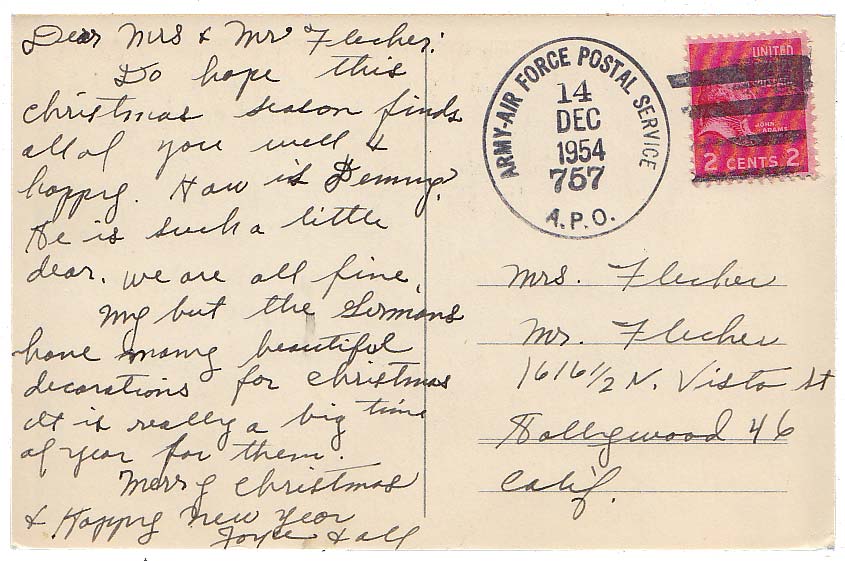 Dear Mrs & Mr Flecher:
Do hope this
christmas season finds
all of you well &
happy. How is Denny?
He is such a little
dear. we are all fine.
My but the Germans
have many beautiful
decorations for christmas
it is really a big time
of year for them.
Merry christmas
& Happy new year
Joyce & all
ARMY-AIR FORCE POSTAL SERVICE
14
DEC
1954
757
A.P.O.
UNITED
JOHN
ADAMS
2 CENTS 2
Mrs. Flecher
Mr. Flecher
1616 1/2 N. Vista St
Hollywood 46
Calif.